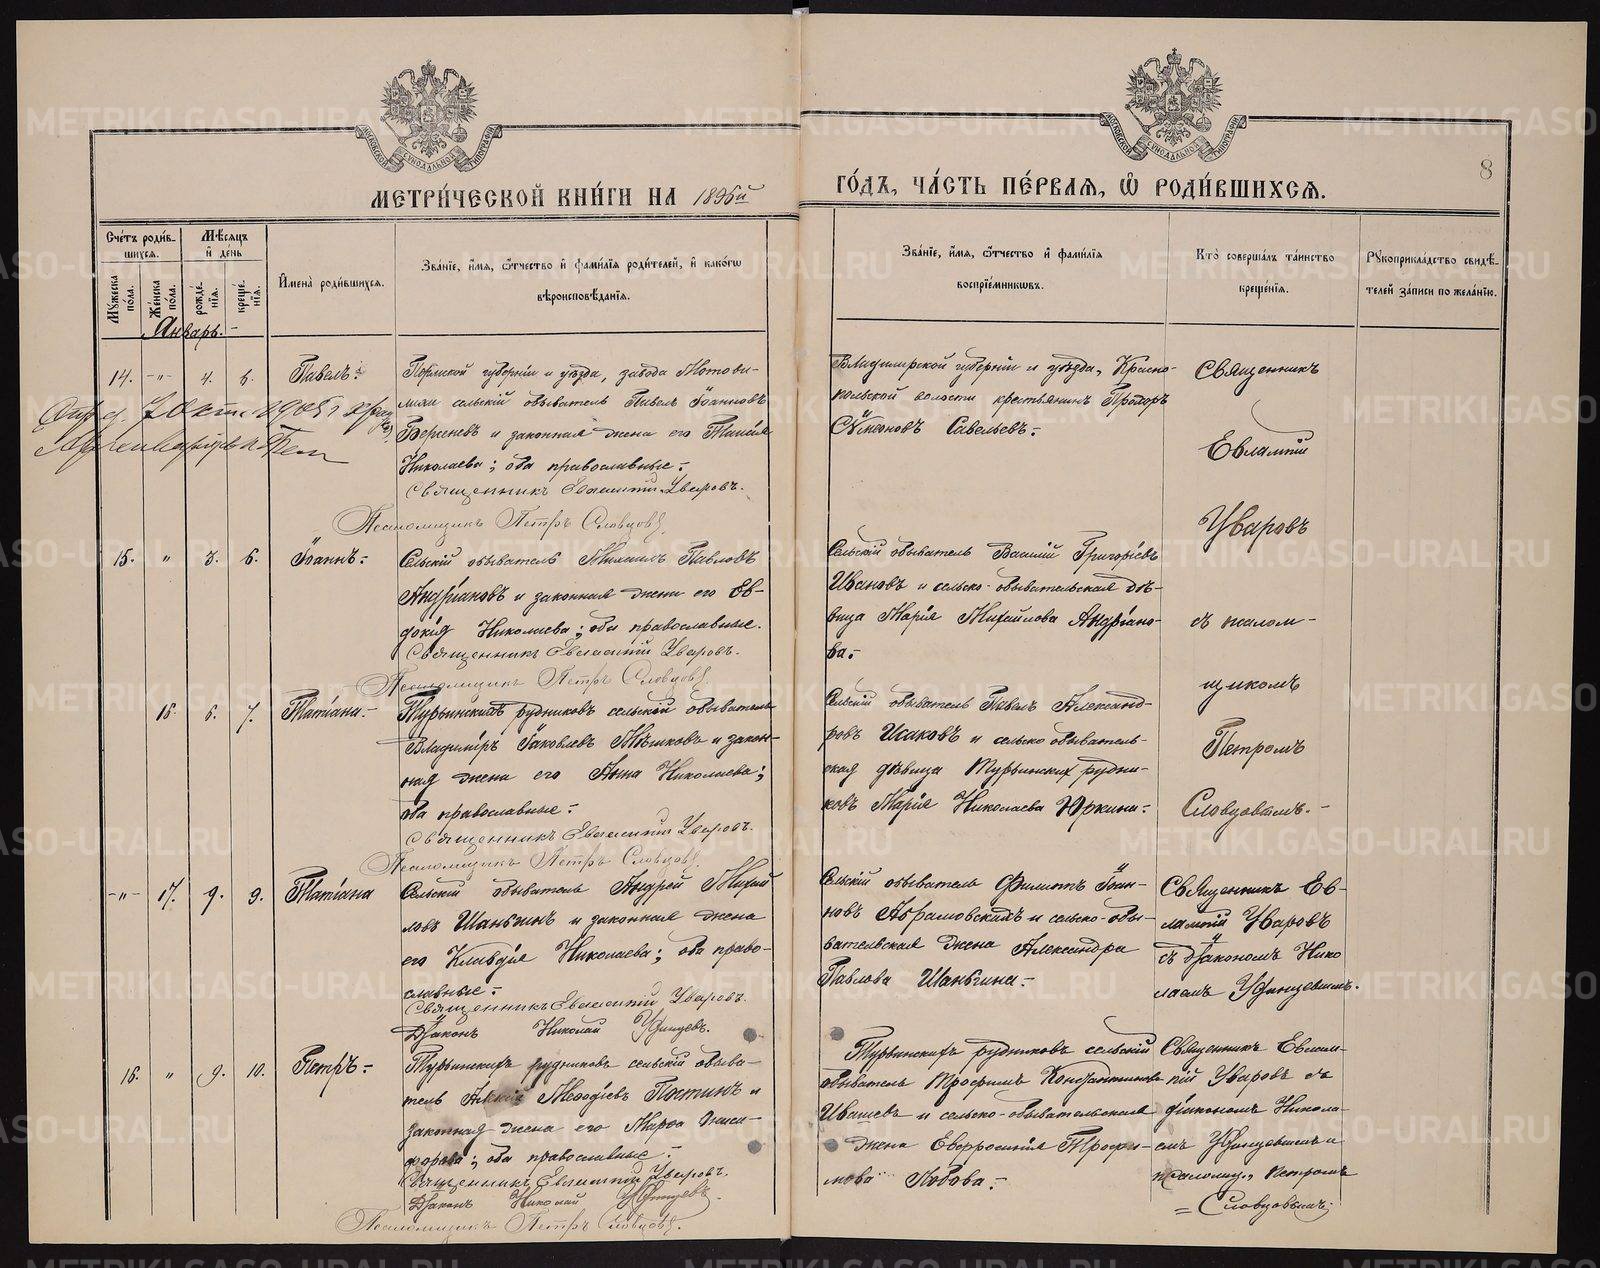 МЕТРИ́ЧЕСКОЙ КНИ́ГИ НА 1896й ГО́ДЪ, ЧА́СТЬ ПЕ́РВАѦ, Ѡ РОДИ́ВШИХСѦ.
8
Сче́тъ роди́в-
шихсѧ.
Мꙋжеска по́ла.
Же́нска по́ла.
Мѣ́сѧцъ
и҆ де́нь
рожде́нїѧ.
креще́нїѧ.
И҆мена̀ роди́вшихсѧ.
Зва́нїе, и҆́мѧ, ѻ҆́тчество и҆ фами́лїѧ роди́телей, и҆ како́гѡ
вѣроисповѣ́данїѧ.
Зва́нїе, и҆́мѧ, ѻ҆́тчество и҆ фами́лїѧ
воспрїе́мникѡвъ.
Кто̀ соверша́лъ та́инство
креще́нїѧ.
Рꙋкоприкла́дство свидѣ́-
телей за́писи по жела́нїю.
Январь.-
14. -"- 4. 6. Павелъ:
Пермской губерніи и уѣзда, завода Мотови-
лихи сельскій обыватель Павелъ Іоанновъ
и законная жена его
Николаева; оба православные.-
Священникъ Евлампій Уваровъ.
Псаломщикъ Петръ Словцовъ.
Владимірской губерніи и уѣзда, Красно-
сельской волости крестьянинъ Прохоръ
Сѵмеоновъ Савельевъ.-
Священникъ
Евлампій
Уваровъ
съ псалом-
щикомъ
Петромъ
Словцовымъ.-
15. " 3. 6. Іоаннъ.-
Сельскій обыватель Михаилъ Павловъ
Андріановъ и законная жена его Ев-
докія Николаева; оба православные.
Священникъ Евлампій Уваровъ.
Псаломщикъ Петръ Словцовъ.
Сельскій обыватель Василій Григорьевъ
Ивановъ и сельско-обывательская дѣ-
вица Марія Михайлова Андріано-
ва.-
16. 6. 7. Татіана.-
Турьинскихъ рудниковъ сельскій обыватель
Владиміръ Іаковлевъ Мѣшковъ и закон-
ная жена его Анна Николаева;
оба православные.-
Священникъ Евлампій Уваровъ.
Псаломщикъ Петръ Словцовъ.
Сельскій обыватель Павелъ Александ-
ровъ Исаковъ и сельско обыватель-
ская дѣвица Турьинских рудни-
ковъ Марія Николаева Юркина.-
-"- 17. 9. 9. Татіана
Сельскій обыватель Андрей Михаи
ловъ Шаньгинъ и законная жена
его Клавдія Николаева; оба право-
славные.-
Священникъ Евлампій Уваровъ.
Діаконъ Николай Удинцевъ.
Сельскій обыватель Филиппъ Іоан-
новъ Абрамовскихъ и сельско-обы-
вательская жена Александра
Павлова Шаньгина.-
Священникъ Ев-
лампій Уваровъ
съ діакономъ Нико
лаемъ Удинцевымъ.
16. " 9. 10. Петръ.-
Турьинскихъ рудниковъ сельскій обыва-
тель Меѳодіевъ Постинъ и
законная жена его Марѳа Ники-
форова; оба православные.-
Священникъ Евлампій Уваровъ.
Діаконъ Николай Удинцевъ.
Псаломщикъ Петръ Словцовъ.
Турьинскихъ рудниковъ сельскій
обыватель Трофимъ Константиновъ
Ивашевъ и сельско-обывательская
жена Евфросинія Трофи-
мова Попова.-
Священникъ Евлам-
пій Уваровъ съ
діакономъ Никола-
емъ Удинцевымъ и
псаломщ. Петромъ
= Словцовымъ.